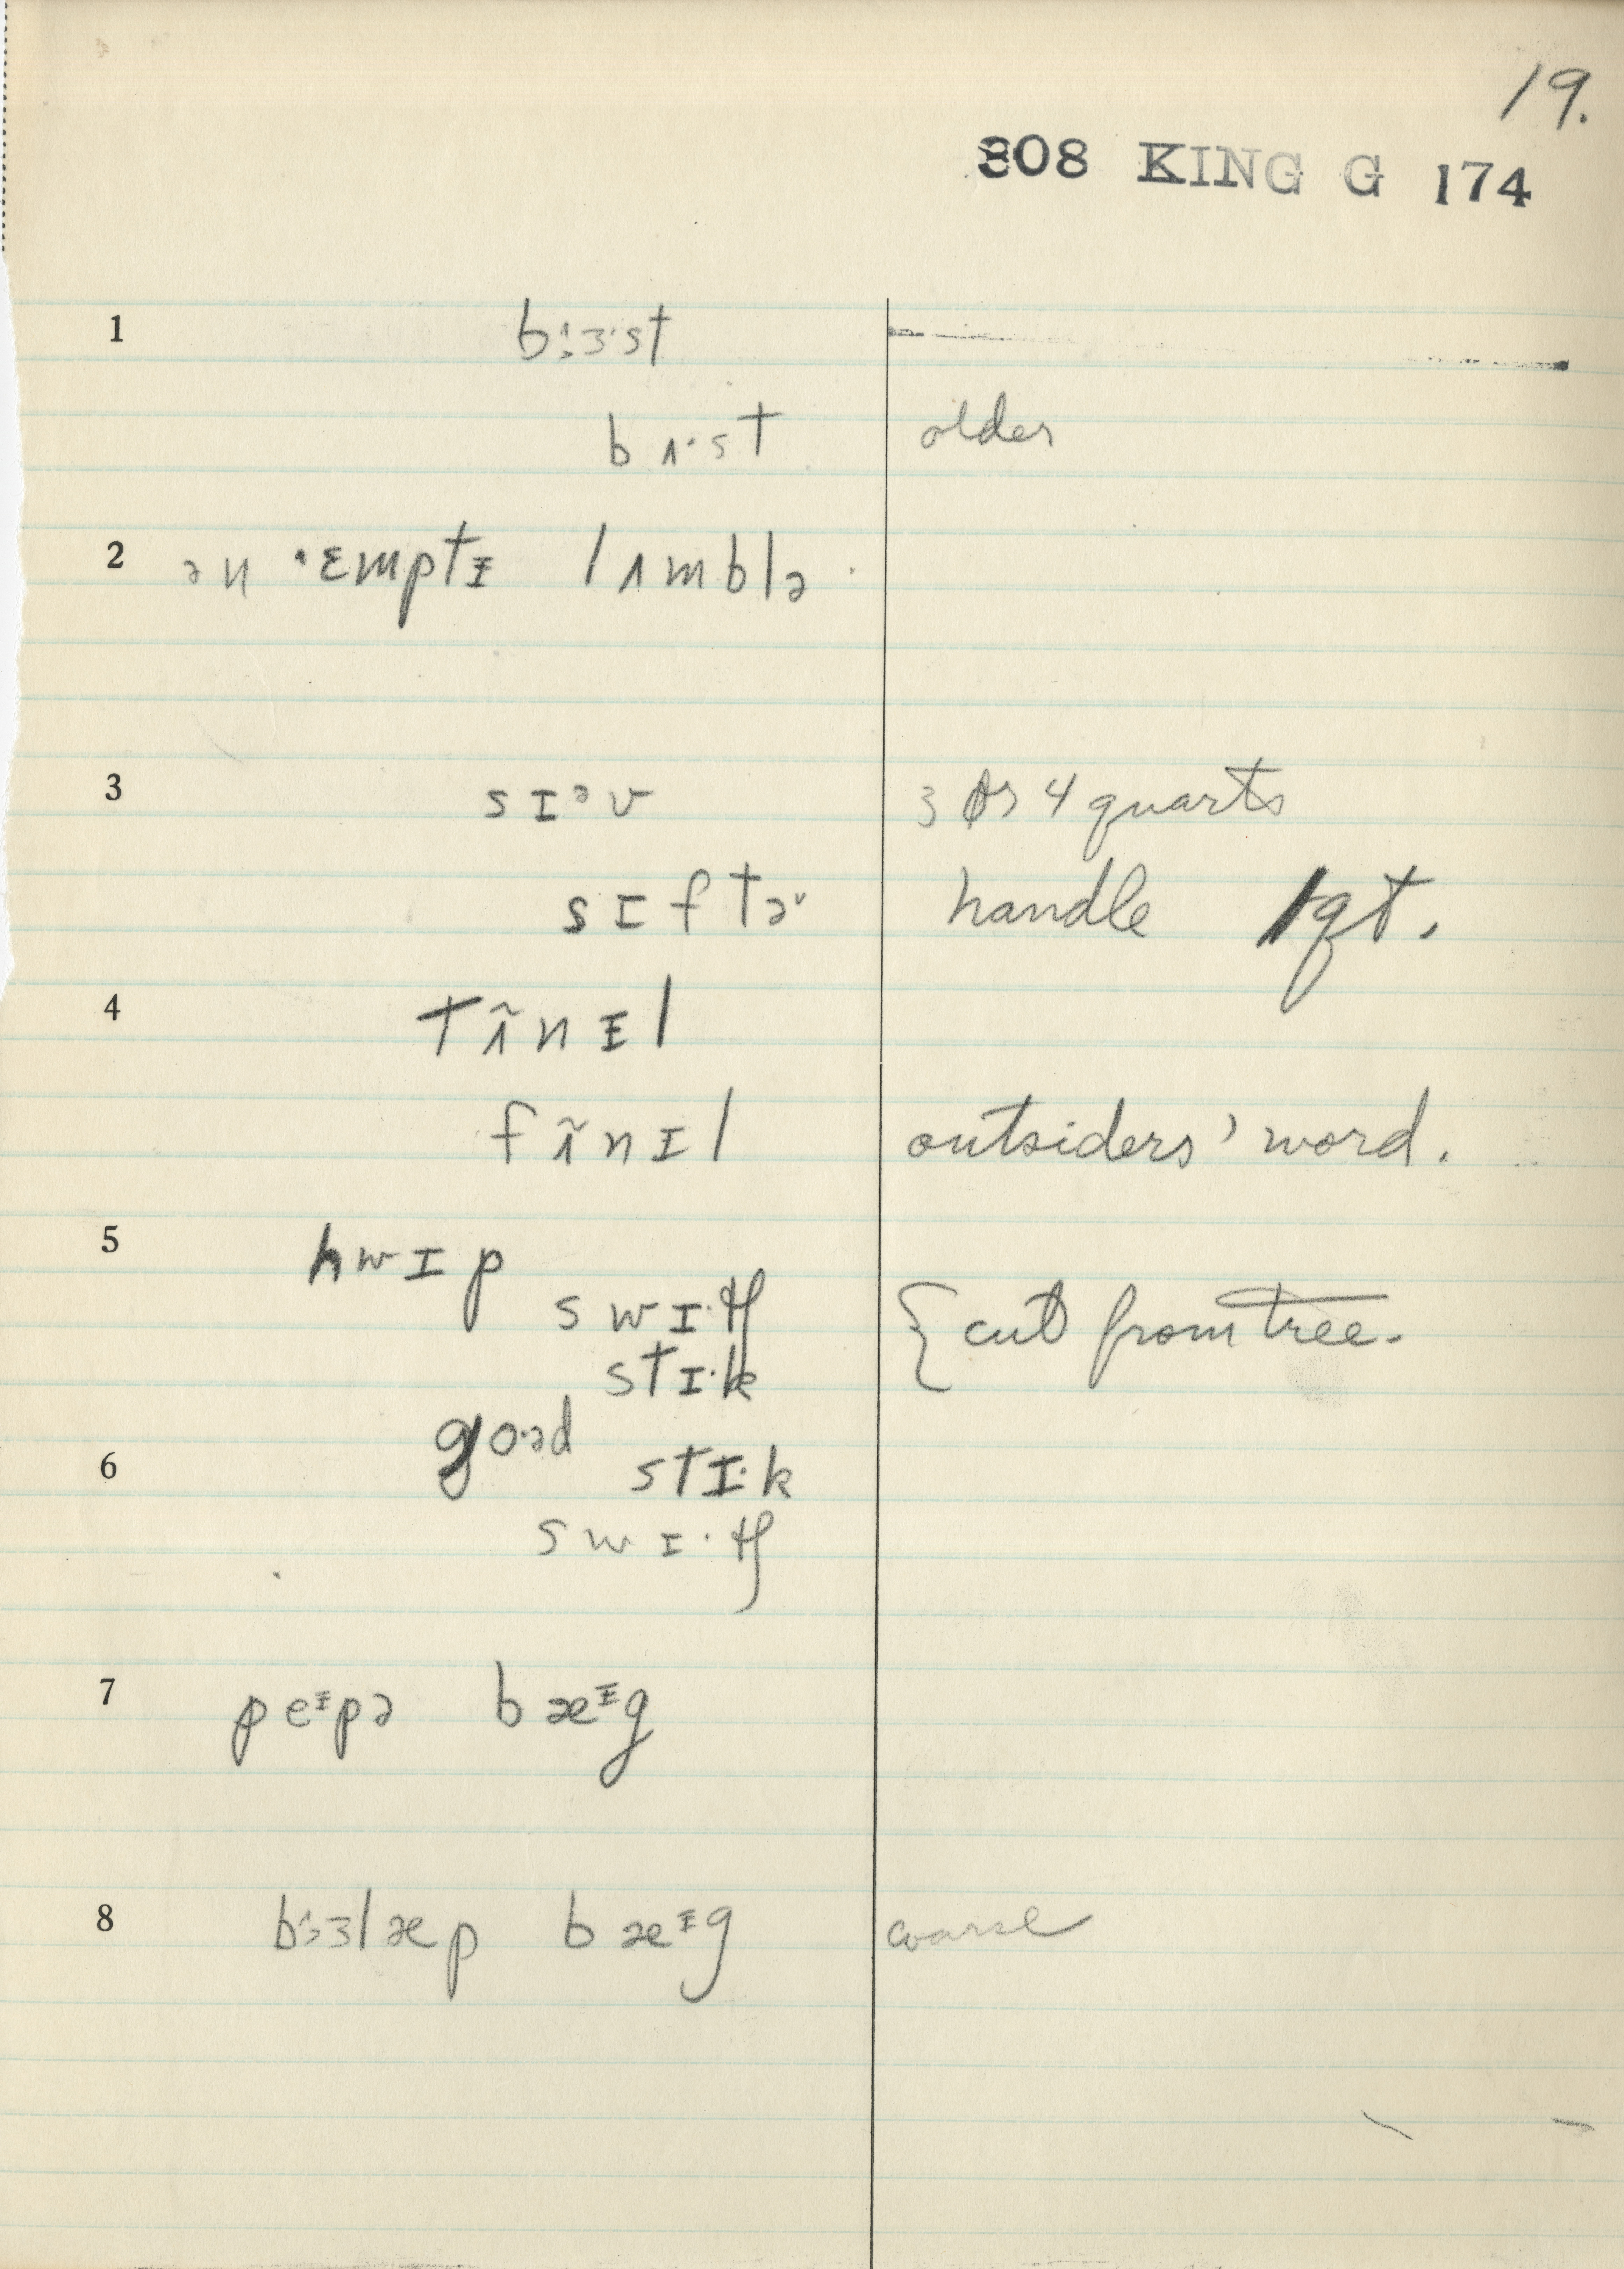 19.
808 KING G 174
1 bɜ:ɜ·st
bʌ·st older
2 ən ˈɛmptɪ lʌmblə
3 sɪᵊv 3 or 4 quarts
sɪftɚ handle 1 qt.
4 tʌ̃nɪl
fʌ̃nɪl outsiders' word.
5 hwɪp
swɪ·tʃ { cut from tree.
stɪ·k
go·əd
6 stɪ·k
swɪ·tʃ
7 peᶦpə bæᶦg
8 bɜ:ɜlæp bæᶦg coarse